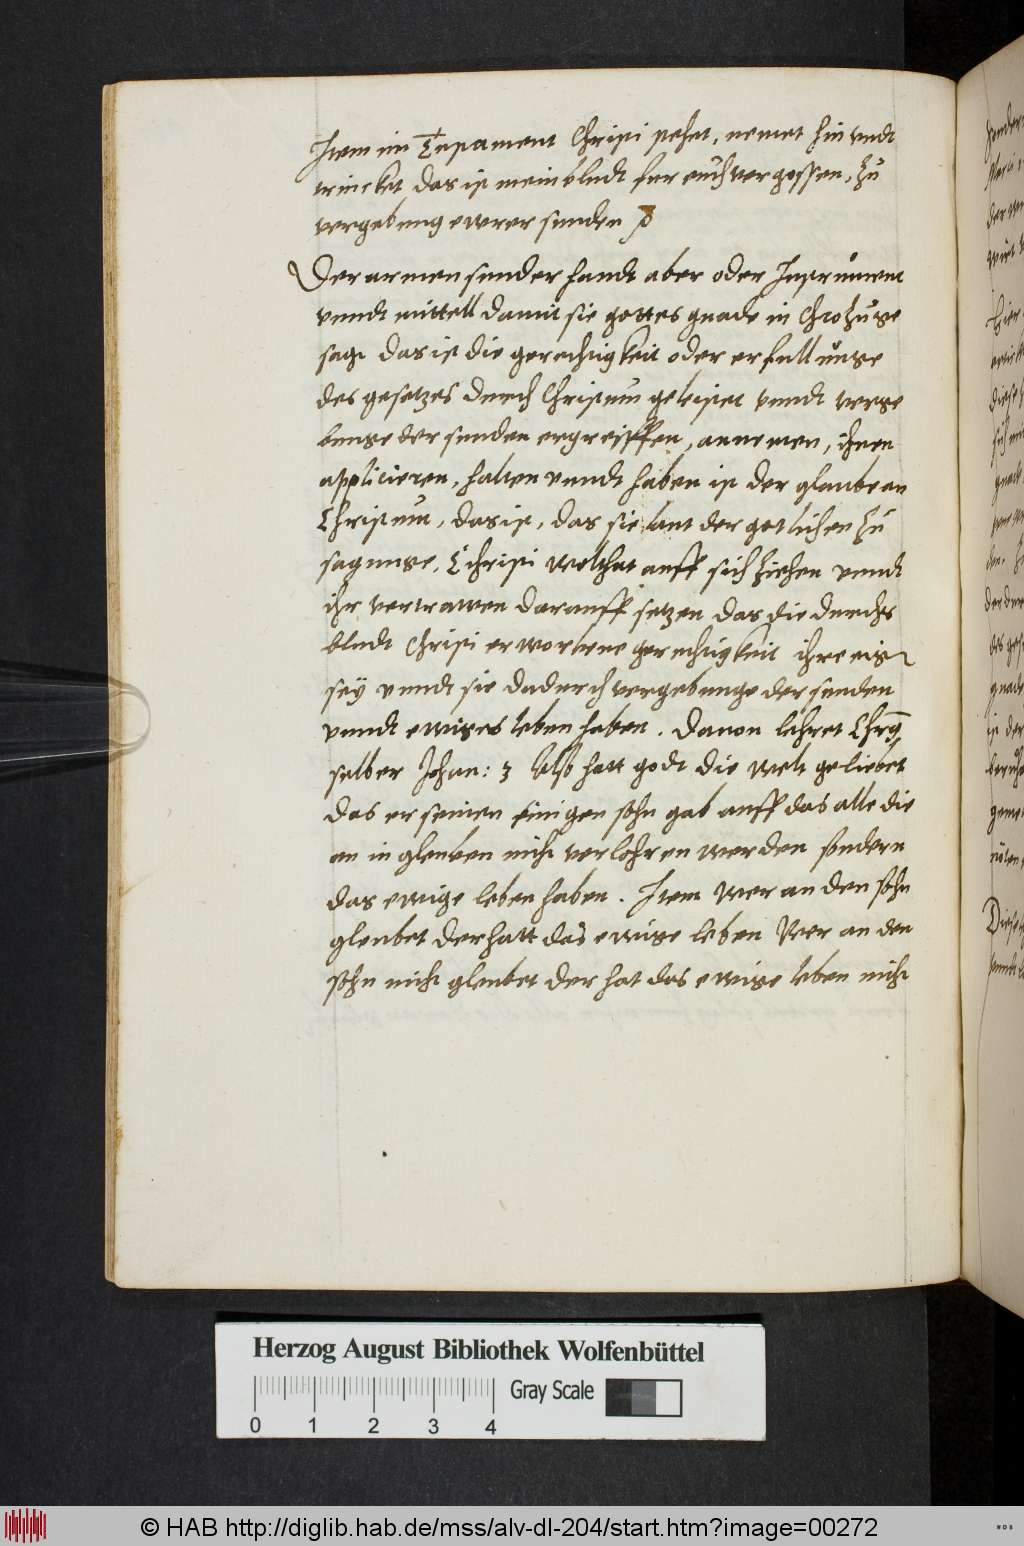 Item im Testament Christi stehet, nemet hin undt
trincket das ist mein bludt fur euch vergossen, zu
vergebung ewrer sunden
Der armen sunder handt aber oder Instrument
unndt mittell damit sie gottes gnade in Christo zuge
sagt das ist die gerechtigkeit oder erfullunge
des gesetzes durch Christum geleistet unndt verge
bunge der sunden ergreiffen, annemen, ihnen
applicieren, halten unndt haben ist der glaube an
Christum, das ist, das sie laut der gotlichen zu
sagunge, Christi wolthat auff sich ziehen unndt
ihr vertrawen darauff setzen das die durchs
bludt Christi erworbene gerechtigkeit ihre eigen
seÿ unndt sie dadurch vergebunge der sunden
unndt ewiges leben haben. Davon lehret Christus
selber Johan: 3 Also hatt godt die welt geliebet
das er seinen einigen sohn gab auff das alle die
an in gleuben nicht verlohren werden sondern
das ewige leben haben. Item Wer an den sohn
gleubet der hatt das ewige leben Wer an den
sohn nicht gleubet der hat das ewige leben nicht
Herzog August Bibliothek Wolfenbüttel
Gray Scale
0 1 2 3 4
© HAB http://diglib.hab.de/mss/alv-dl-204/start.htm?image=00272